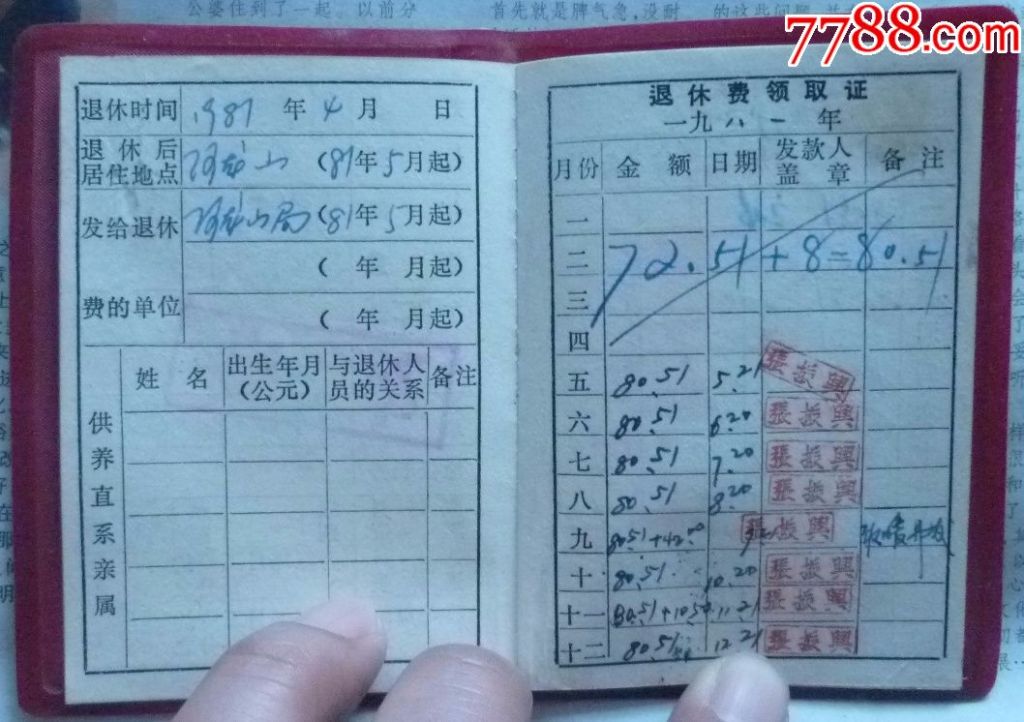 公婆住到了一起。以前分
首先就是脾气急,没耐
的这些问题
7788.com
退休时间 1981 年 4 月 日
退休后居住地点 (81年5月起)
发给退休费的单位 (81年5月起)
( 年 月起)
( 年 月起)
供养直系亲属
姓名 出生年月(公元) 与退休人员的关系 备注
退休费领取证
一九八一年
月份 金额 日期 发款人盖章 备注
一
二 72.51+8=80.51
三
四
五 80.51 5.21 張振興
六 80.51 6.20 張振興
七 80.51 7.20 張振興
八 80.51 8.20 張振興
九 80.51+42.00 張振興
十 80.51 10.20 張振興
十一 80.51+10.50 11.21 張振興
十二 80.51 12.21 張振興